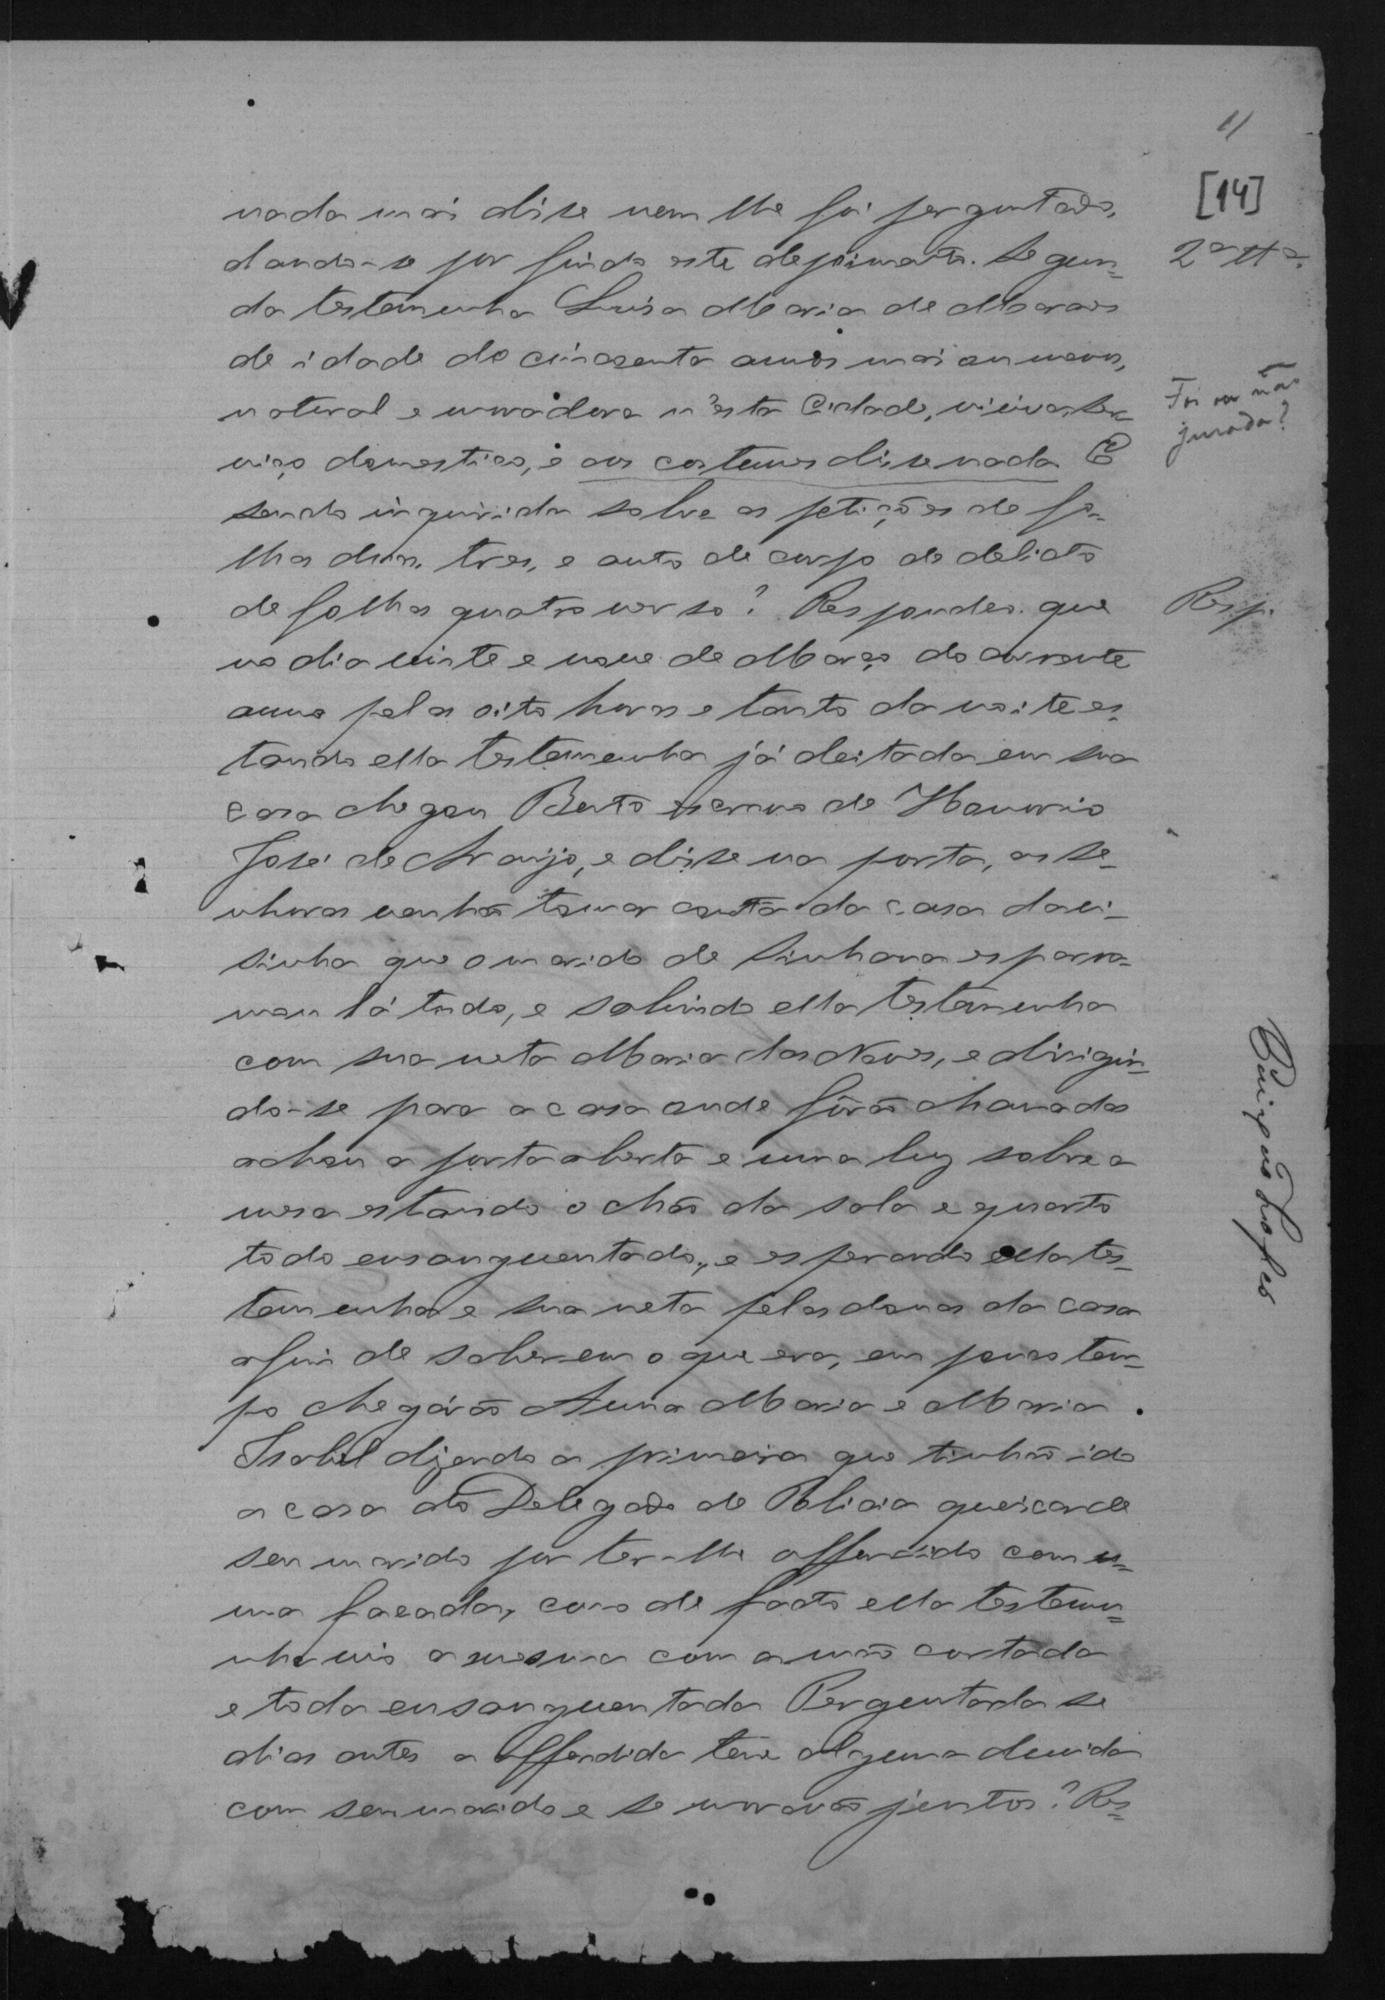 11
[14]
nada mais disse nem lhe foi perguntado,
dando-se por findo este depoimento. Segun=
2ª ttª.
da testemunha Luisa Maria de Moraes
de idade de cincoenta annos mais ou menos,
natural e moradora n'esta Cidade, viuva, ser=
Foi ou não
jurada?
viço domestico, e aos costumes disse nada E
sendo inquirida sobre as petições de fo=
lhas duas, tres, e auto de corpo de delicto
de folhas quatro verso? Respondeo que
Resp.
no dia vinte e nove de Março do corrente
anno pelas oito horas e tanto da noite es=
tando ella testemunha já deitada em sua
casa chegou Bento escravo de Hanorio
José de Araujo, e disse na porta, as se=
nhoras venhão tomar conta da casa da vi=
sinha que o marido de Sinhana esparra=
mou lá tudo, e sahindo ella testemunha
com sua neta Maria das Neves, e dirigin=
do-se para a casa onde fôrão chamadas
achou a porta aberta e uma luz sobre a
mesa estando o chão da sala e quarto
todo ensanguentado, e esperando ella tes=
temunha e sua neta pelas donas da casa
afim de saberem o que era, em pouco tem=
po chegárão Anna Maria e Maria
Isabel dizendo a primeira que tinhão ido
a casa do Delegado de Policia queixar de
seu marido por ter-lhe offendido com u=
ma facada, como de facto ella testemu=
nha vio a mesma com a mão cortada
e toda ensanguentada Perguntada se
dias antes a offendida teve alguma duvida
com seu marido e se moravão juntos? Res=
Lopes